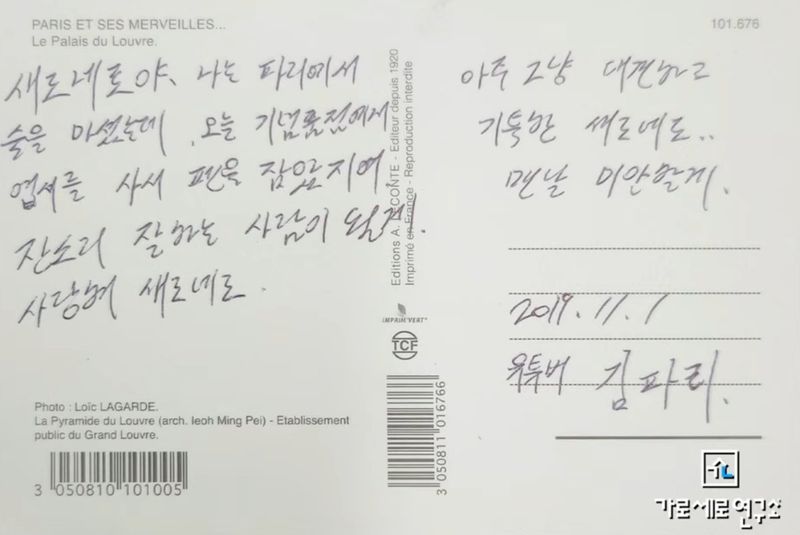 PARIS ET SES MERVEILLES...
Le Palais du Louvre.
101.676
새로네로야, 나는 파리에서
술을 마셨는데, 오늘 기념품점에게
엽서를 사서 펜을 잡았지여
잔소리 잘하는 사람이 될게!
사랑해 새로네로.
아주 그냥 대견하고
기특한 새로네로..
맨날 미안할게.
2019. 11. 1
유투버 김파리.
Editions A. LECONTE - Editeur depuis 1920
Imprimé en France - Reproduction interdite
IMPRIM'VERT®
TCF
3 050811 016766
Photo : Loïc LAGARDE.
La Pyramide du Louvre (arch. Ieoh Ming Pei) - Etablissement
public du Grand Louvre.
3 050810 101005
가로세로연구소